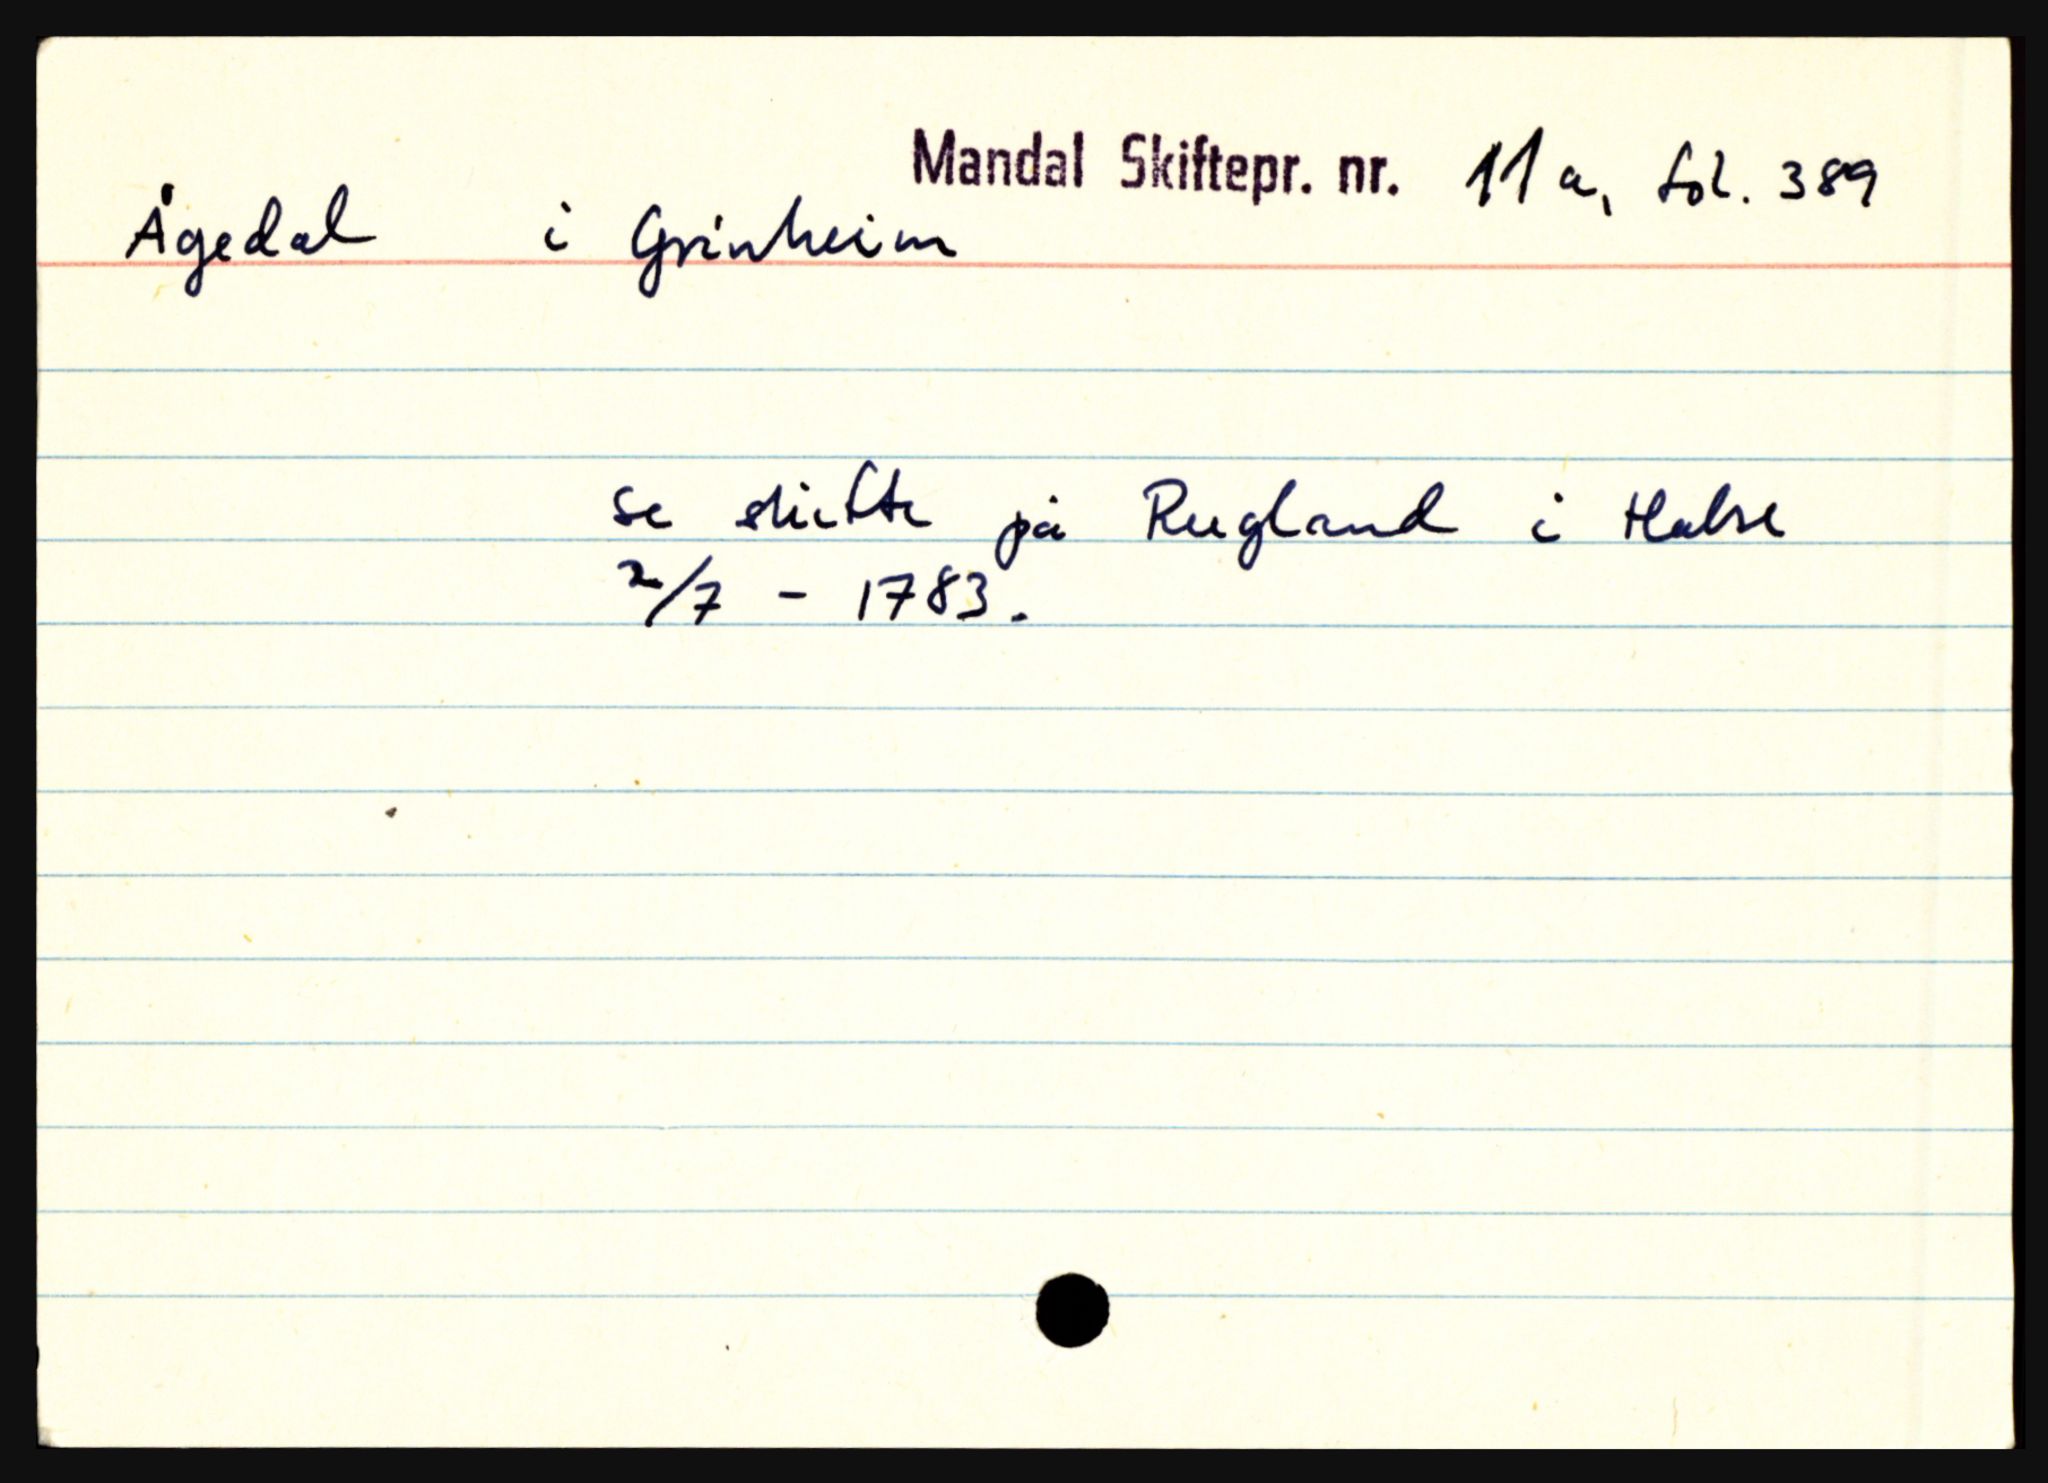 Mandal Skiftepr. nr. 11 a, fol. 389
Ågedal i Grinheim
se skifte på Rugland i Halse
2/7 - 1783.